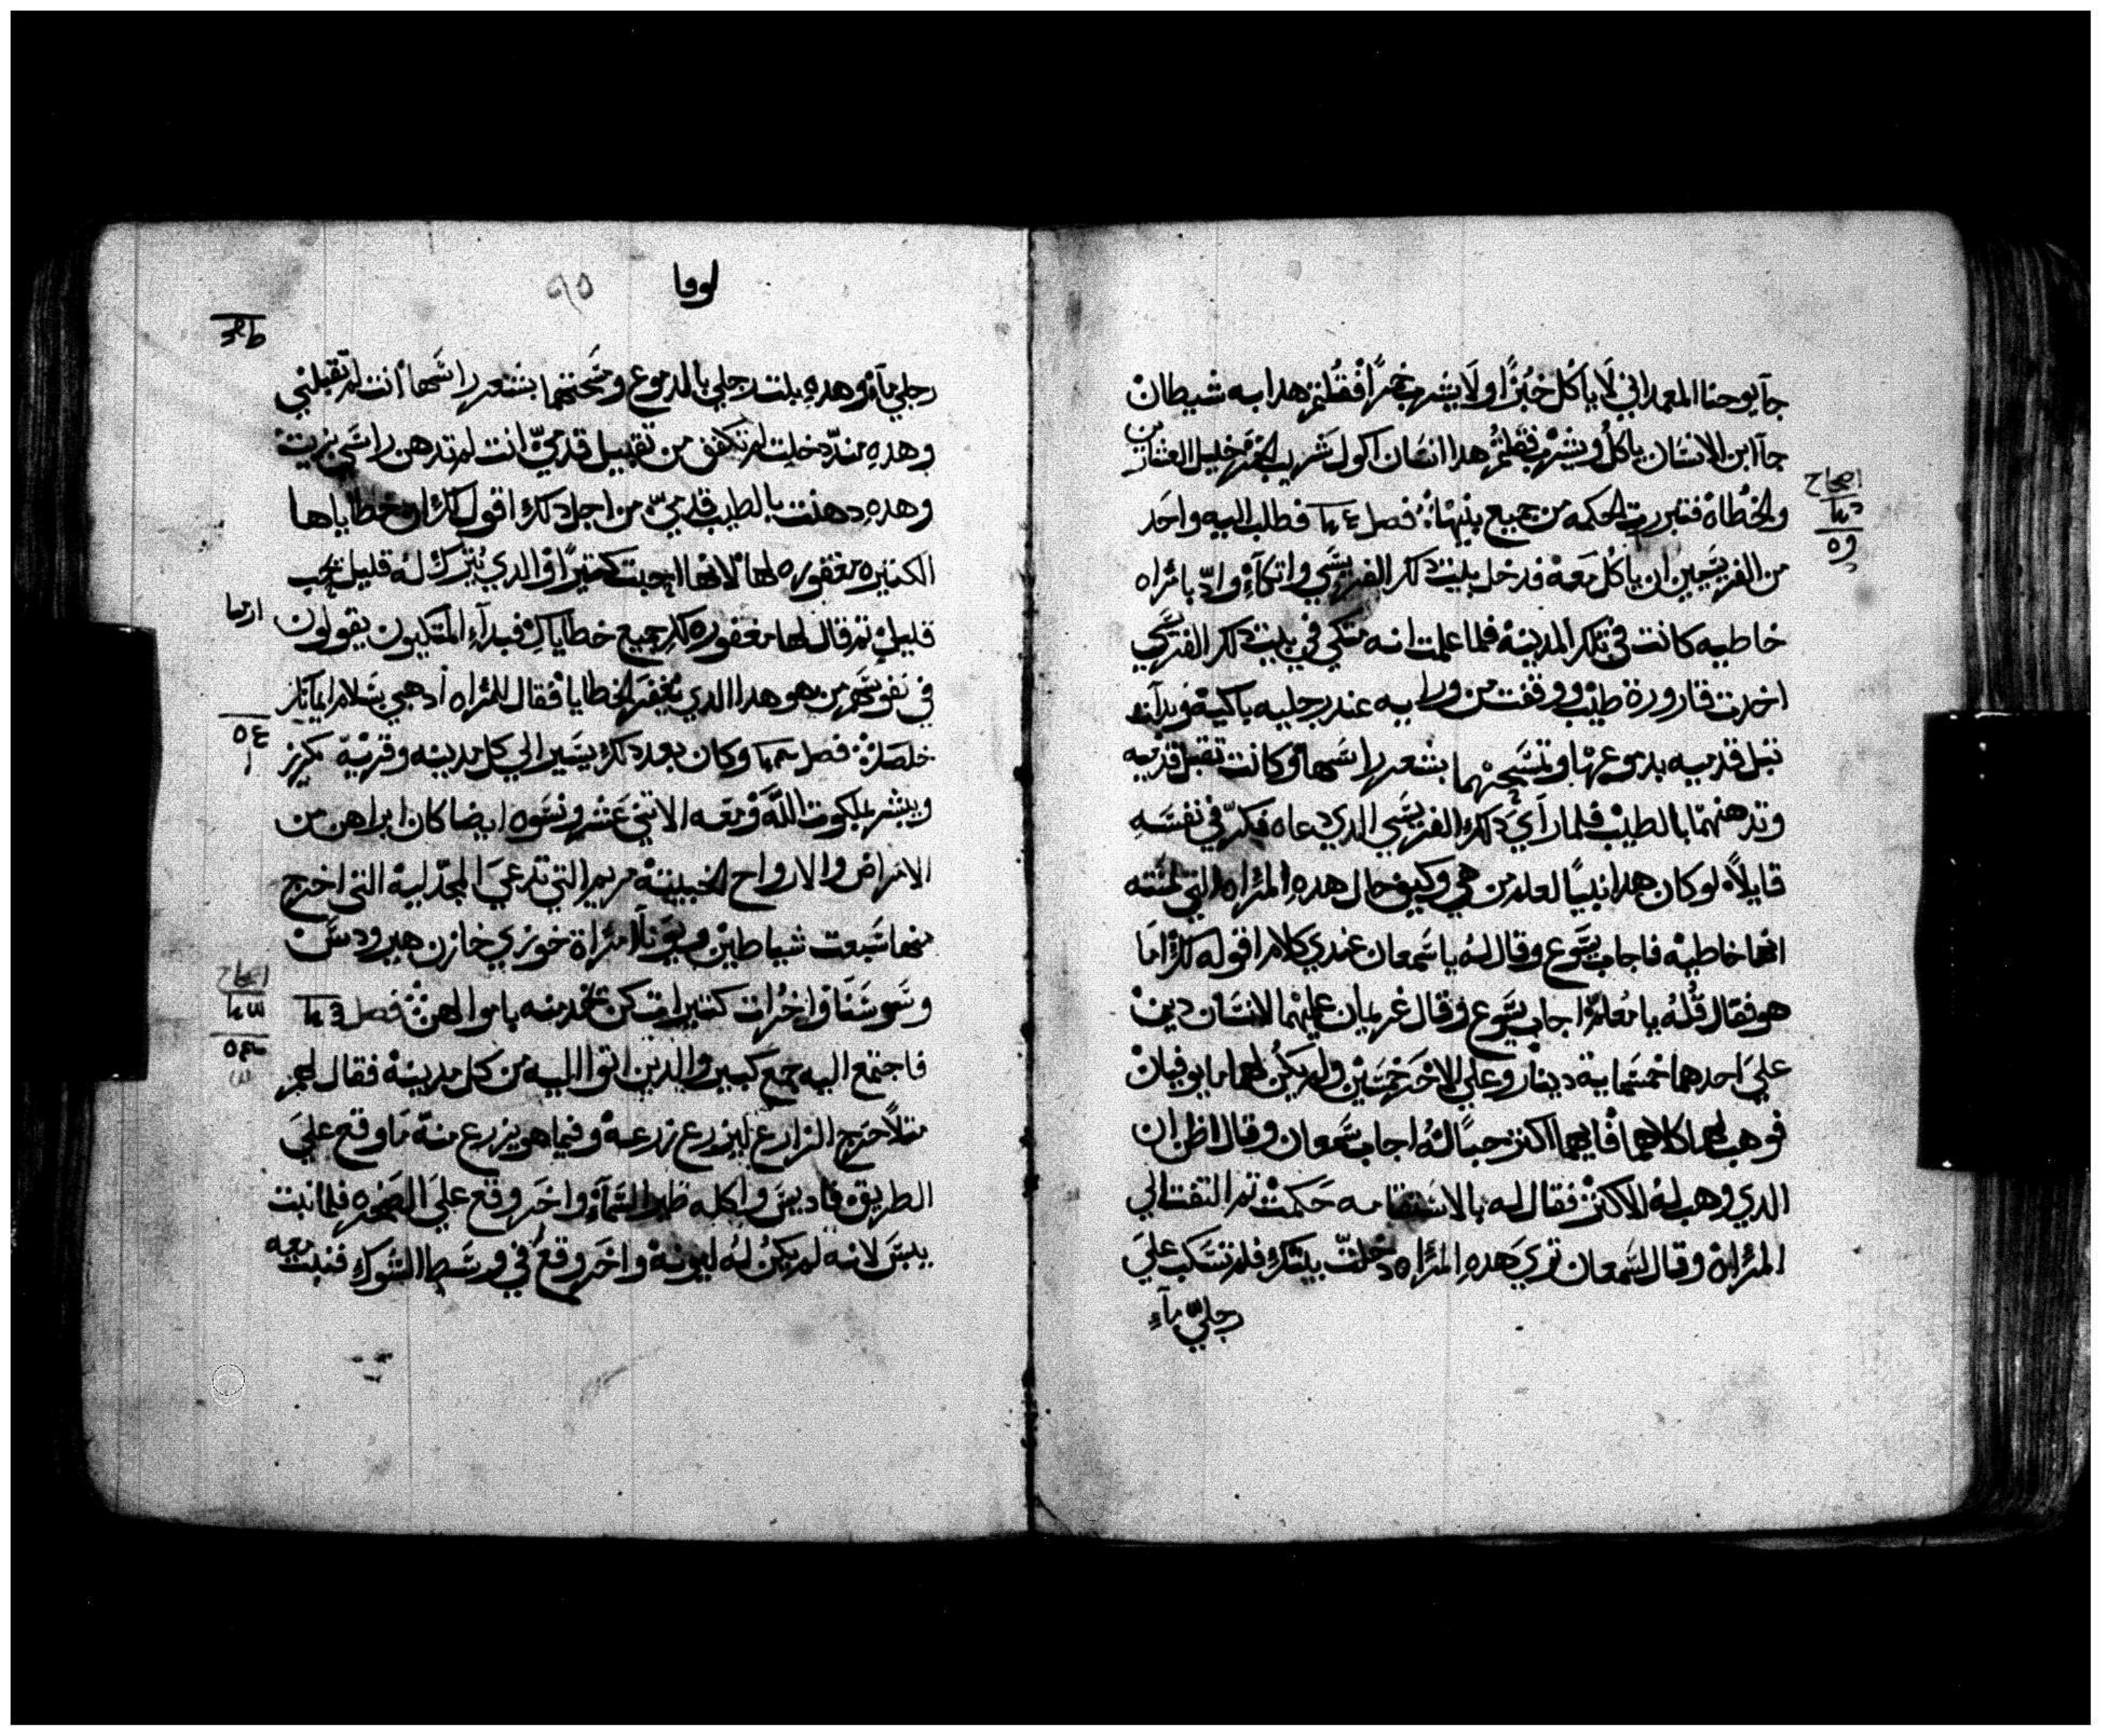 جآ يوحنا المعمداني لَا ياكل خُبزًا ولَا يشرب خمرًا فقُلتم هدا به شيطان
جآ ابن الانسَان ياكلُ ويشرب فقلتمُ هدا انسَان اكول شَريب الخمر خليل العشارين
والخُطاه فتبررت الحكمه من جميع بنيهَا فصل فطلب اليه واحَد
من الفريسَيين ان ياكُل مَعهُ فدخل بيت دلك الفريسَي واتكآءَ وادّ بامُراه
خاطيه كانت في تلك المدينهْ فلما علمت انه متكي في بيت دلك الفريسَي
اخدت قارورة طيبْ ووقفت من ورايه عند رجليه باكيهْ وبدآت
تبل قدميه بدموعهَا وتمسَحهما بشعر راسَها وكانت تقبل قدميه
وتدهنهمَا بالطيبْ فلما رآيَ دلك الفريسَي الدي دعاه فكرّ في نفسَه
قايلًا لو كان هدا نبيًا لعلم من هي وكيف حال هدهِ المرُاه التي لمسَته
انها خاطيهْ فاجاب يسَوع وقال لهُ يا سَمعان عندي كلام اقوله لكْ امَا
هو فقال قُلهُ يا مُعلمْ اجاب يسَوع وقال غريمان عليهما لانسَان دينْ
عليَ احدهما خمسَماية دينار وعلي الاخَر خمسَيْن ولم يكُن لهما ما يوفيانْ
فوهب لهما كلاهما فايهما اكتر حبًا لهُ اجاب سَمعان وقال اظن ان
الدي وهب لهُ الاكترْ فقال له بالاسَتقامه حَكمتْ تم التفت الي
المرُاهْ وقال لسَمعان تري هدهِ المرُاه دخلتّ بيتكْ فلم تسَكب عليَ
رجليّ مآءٍ
لوقا
٩٥
رجلي مآءْ وهدهِ بلت رجلي بالدموع ومسَحتهما بشعر راسَها انت لم تقبلني
وهدهِ مندّ دخلت لم تكف من تقبيل قدميّ انت لم تدهن راسَي بزيت
وهدهِ دهنت بالطيب قدميّ من اجل دلك اقول لك ان خطاياها
الكتيره مغفوره لها لانها احبت كتيرًا والدي يُترك لهُ قليل يحب
قليلْ تم قال لها مغفوره لكِ جميع خطاياكِ فبدآءَ المتكيون يقولون
في نفوسَهم من هو هدا الدي يُغفر الخطايا فقال للمرُاه أدهبي بسَلام ايمانك
خلصَكْ فصل وكان بعد دلك يسَير الي كل مدينه وقريَهْ يكرز
ويبشر بملكوت اللّه وَمعه الاتني عَشر ونسَوه ايضا كان ابراهن من
الامراض والارواح الخبيتهْ مريم التي تدعيَ المجدّليهْ التي اخرج
منها سَبعت شياطيْن ويوَنا امرُاة خوزي خازن هيرودسَْ
وسَوسَنَا واخُرات كتيرات كن تخدمنه باموالهنْ فصل
فاجتمع اليه جمع كبير والدين اتوا اليه من كل مدينهْ فقال لهم
متلًا خرج الزارع ليزرع زرعهْ وفيما هو يزرع منهُ مَا وقع عليَ
الطريق فاديسَ واكله طير السَمآءْ واخَر وقع عليَ الصَخره فلما نبت
يبسَ لانهُ لم يكنُ لهُ ليونهْ واخَر وقع في وسَط الشوك فنبت معه